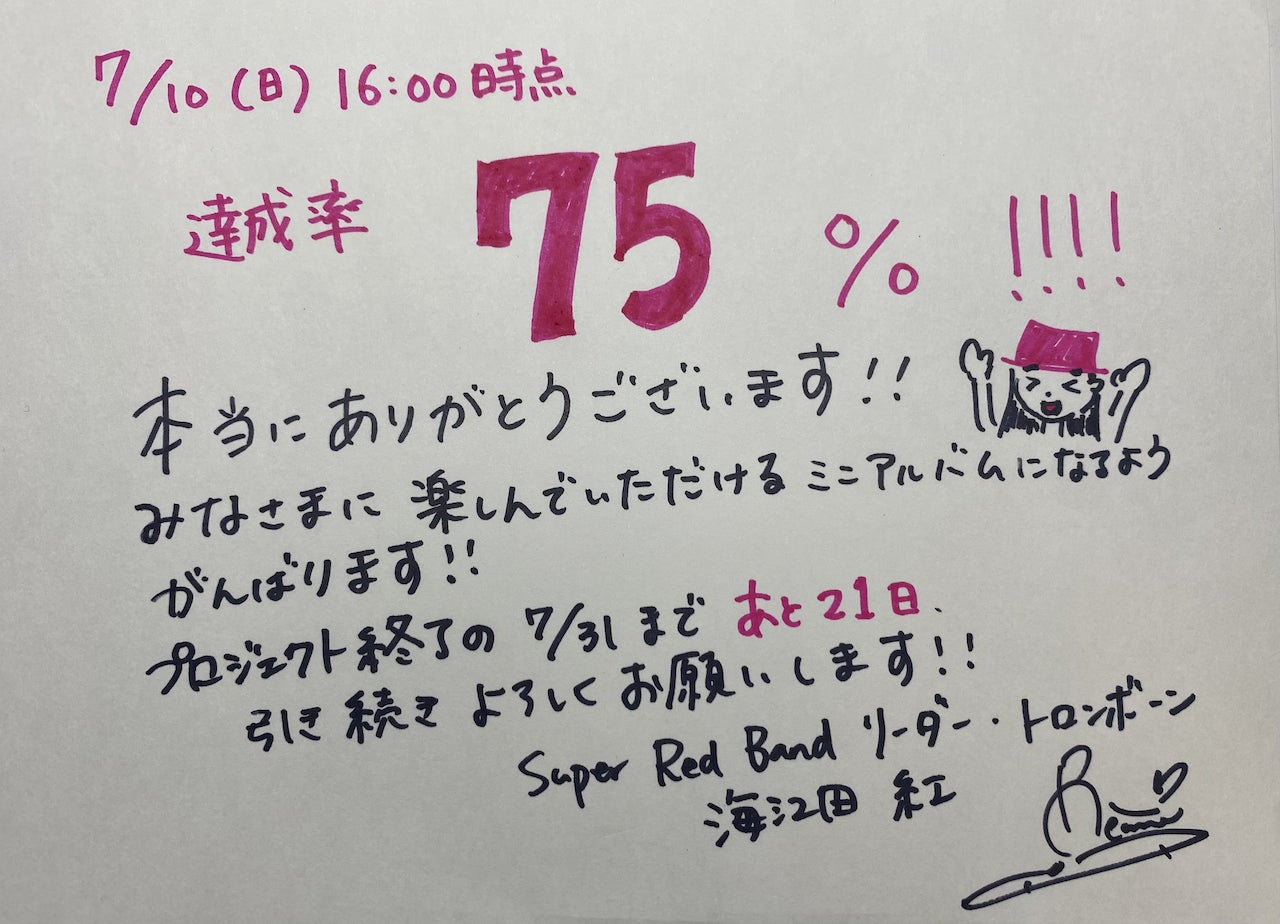 7/10(日)16:00時点
達成率 75% !!!!
本当にありがとうございます!!
みなさまに楽しんでいただけるミニアルバムになるよう
がんばります!!
プロジェクト終了の7/31まであと21日、
引き続きよろしくお願いします!!
Super Red Band リーダー・トロンボーン
海江田 紅